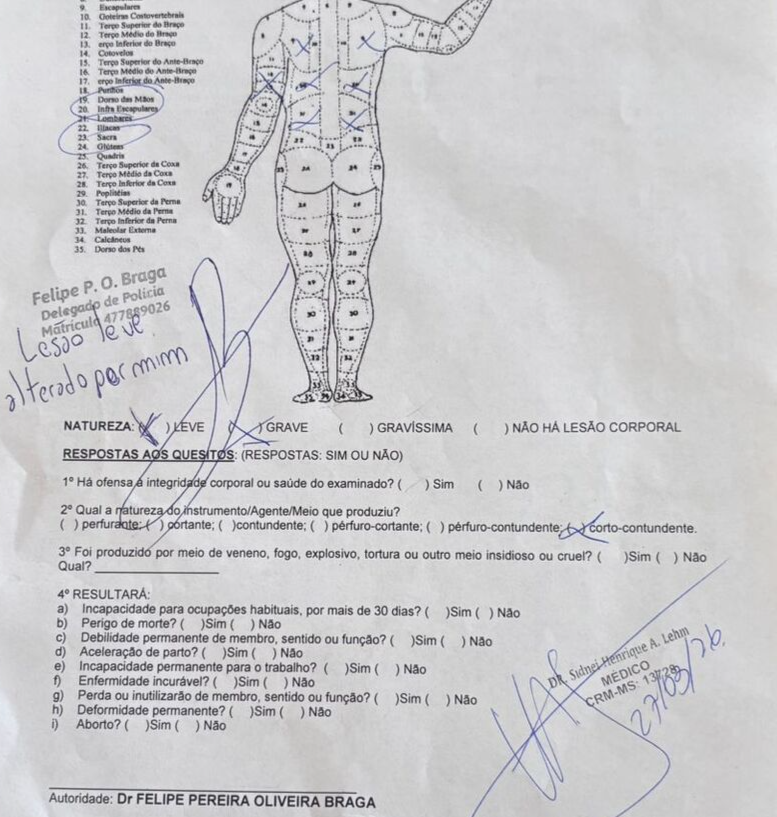 9. Escapulares
10. Goteiras Costovertebrais
11. Terço Superior do Braço
12. Terço Médio do Braço
13. erço Inferior do Braço
14. Cotovelos
15. Terço Superior do Ante-Braço
16. Terço Médio do Ante-Braço
17. erço Inferior do Ante-Braço
18. Punhos
19. Dorso das Mãos
20. Infra Escapulares
21. Lombares
22. Ilíacas
23. Sacra
24. Glúteas
25. Quadris
26. Terço Superior da Coxa
27. Terço Médio da Coxa
28. Terço Inferior da Coxa
29. Poplitéias
30. Terço Superior da Perna
31. Terço Médio da Perna
32. Terço Inferior da Perna
33. Maleolar Externa
34. Calcâneos
35. Dorso dos Pés
Felipe P. O. Braga
Delegado de Polícia
Matrícula 477889026
Lesão leve
alterado por mim
NATUREZA: (X) LEVE (X) GRAVE ( ) GRAVÍSSIMA ( ) NÃO HÁ LESÃO CORPORAL
RESPOSTAS AOS QUESITOS: (RESPOSTAS: SIM OU NÃO)
1º Há ofensa à integridade corporal ou saúde do examinado? ( ) Sim ( ) Não
2º Qual a natureza do instrumento/Agente/Meio que produziu?
( ) perfurante; ( ) cortante; ( )contundente; ( ) pérfuro-cortante; ( ) pérfuro-contundente; (X) corto-contundente.
3º Foi produzido por meio de veneno, fogo, explosivo, tortura ou outro meio insidioso ou cruel? ( )Sim ( ) Não
Qual? ____________________
4º RESULTARÁ:
a) Incapacidade para ocupações habituais, por mais de 30 dias? ( )Sim ( ) Não
b) Perigo de morte? ( )Sim ( ) Não
c) Debilidade permanente de membro, sentido ou função? ( )Sim ( ) Não
d) Aceleração de parto? ( )Sim ( ) Não
e) Incapacidade permanente para o trabalho? ( )Sim ( ) Não
f) Enfermidade incurável? ( )Sim ( ) Não
g) Perda ou inutilizarão de membro, sentido ou função? ( )Sim ( ) Não
h) Deformidade permanente? ( )Sim ( ) Não
i) Aborto? ( )Sim ( ) Não
DR. Sidnei Henrique A. Lehm
MÉDICO
CRM-MS:
27/03/26.
Autoridade: Dr FELIPE PEREIRA OLIVEIRA BRAGA